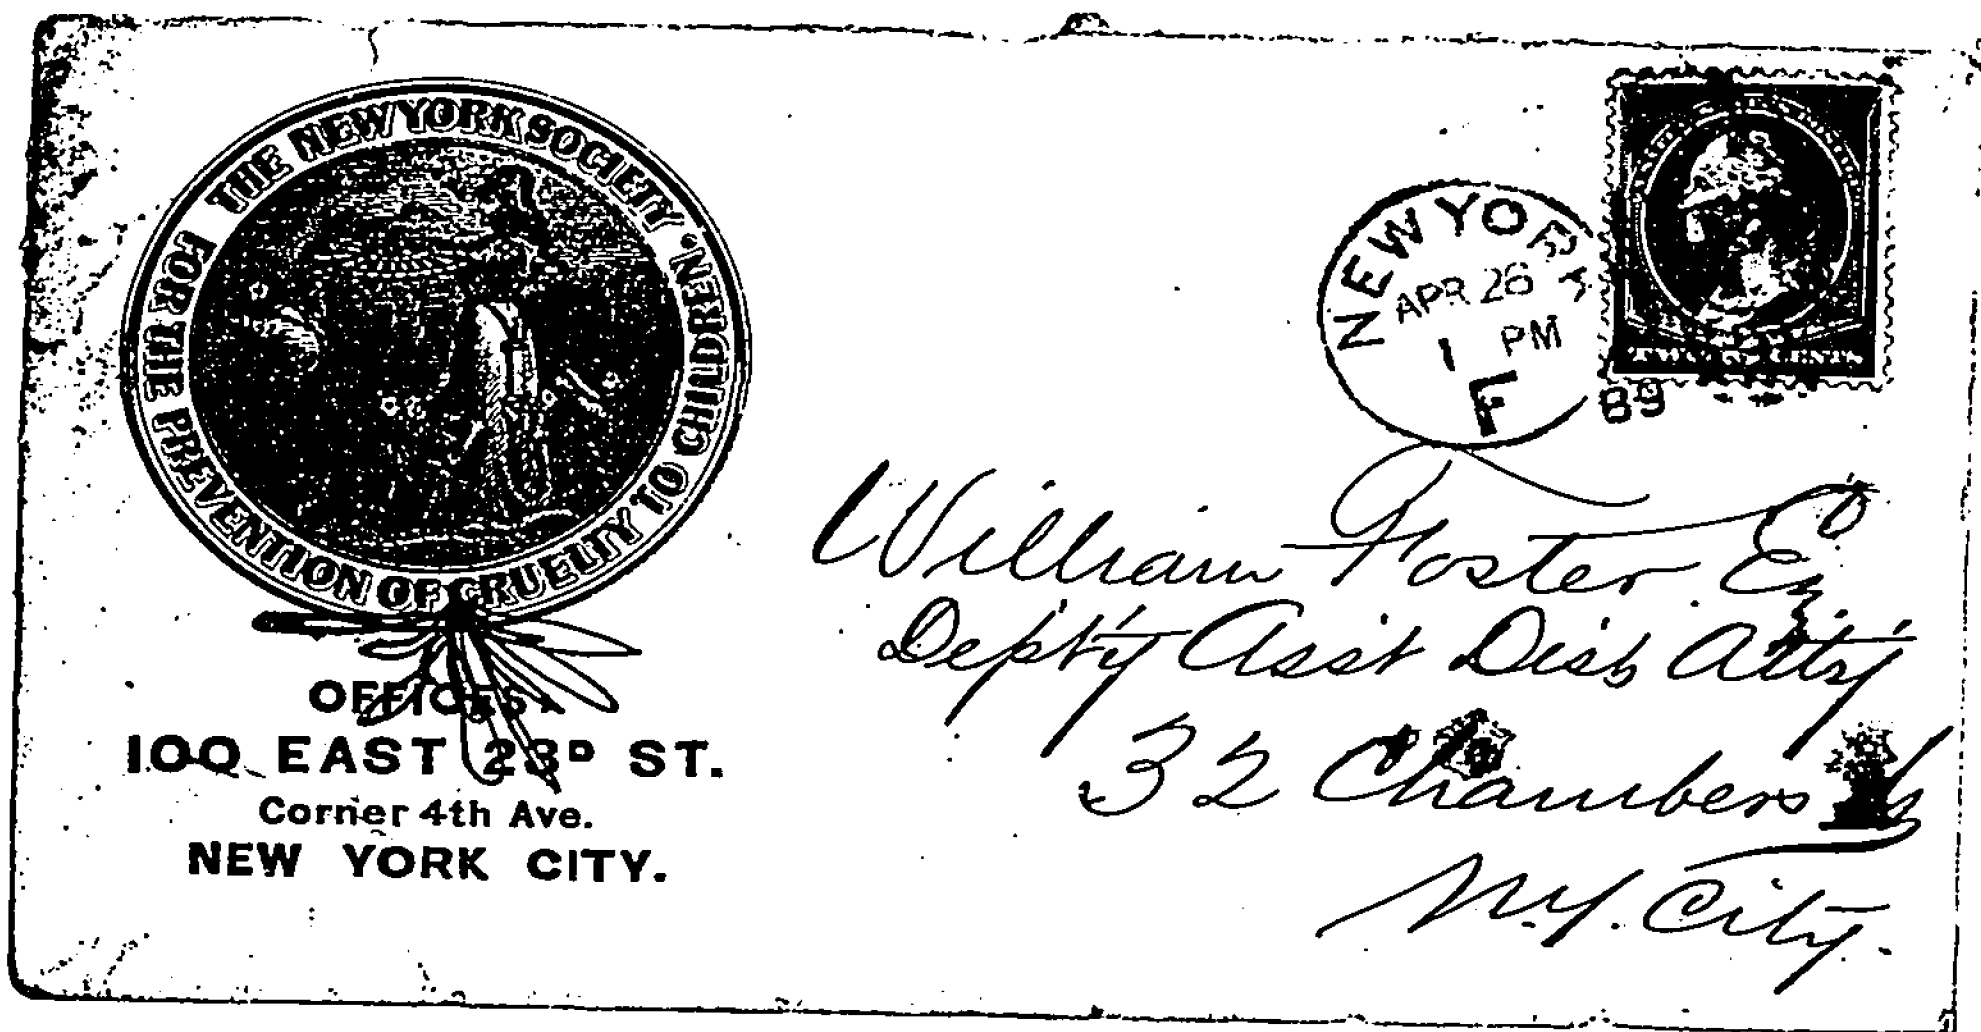 THE NEW YORK SOCIETY
FOR THE PREVENTION OF CRUELTY TO CHILDREN.
OFFICES:
100 EAST 23D ST.
Corner 4th Ave.
NEW YORK CITY.
NEW YORK
APR 26
1 PM
F
89
TWO CENTS
William Foster Esq
Dep'ty Asst Dist Att'y
32 Chambers St
N.Y. City.